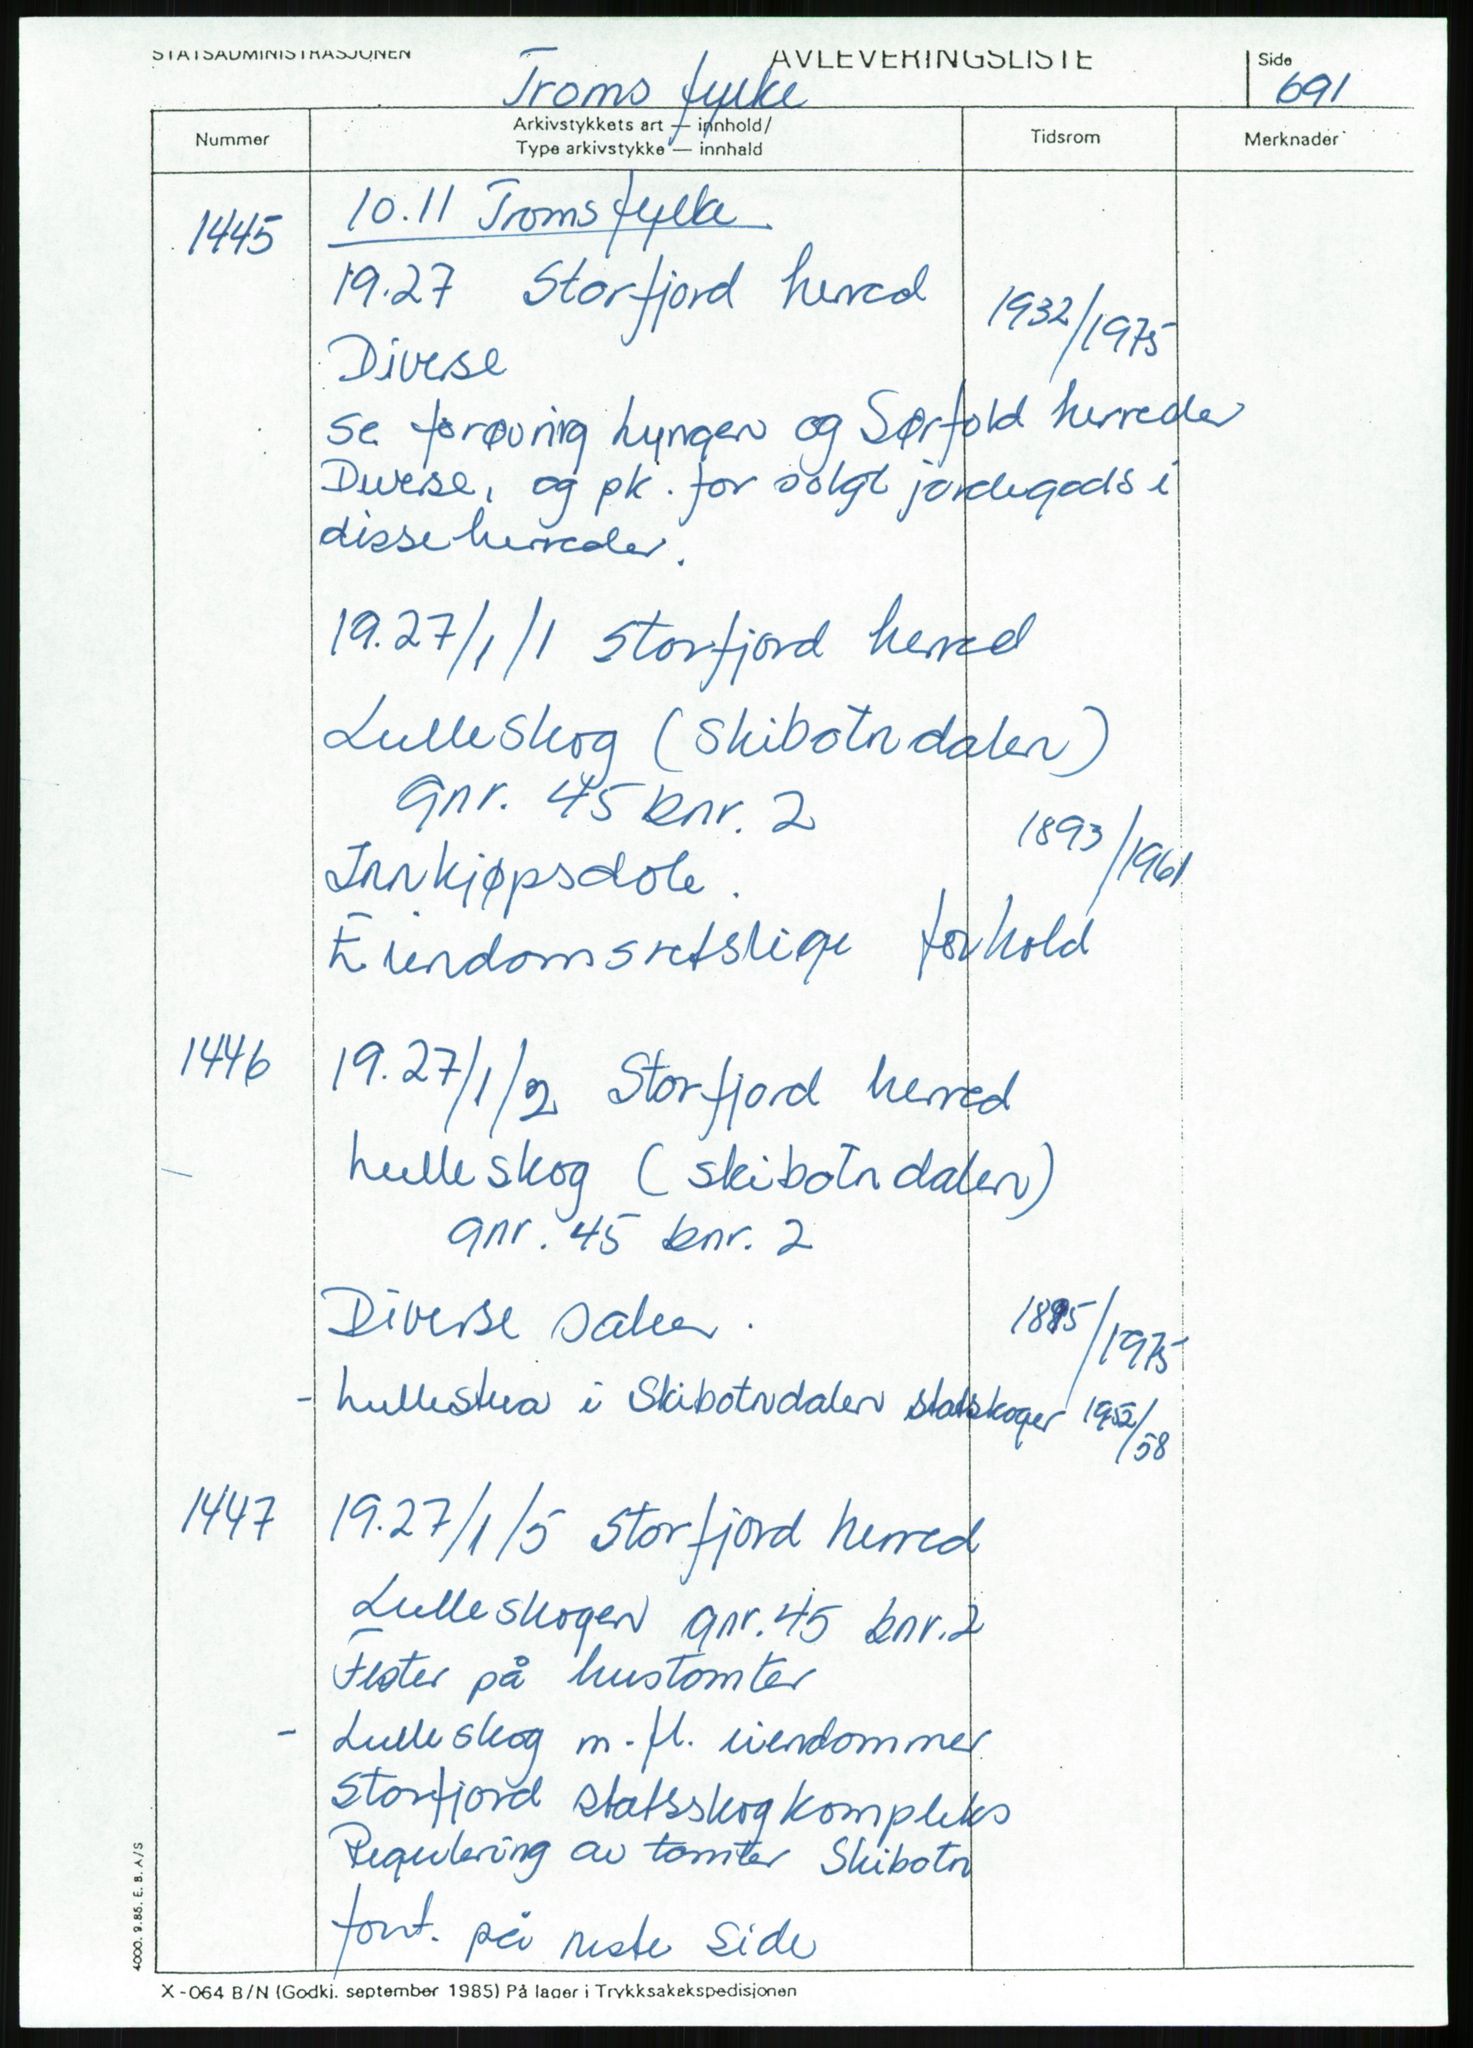 STATSADMINISTRASJONEN AVLEVERINGSLISTE Side
Troms fylke 691
Nummer Arkivstykkets art — innhold/ Tidsrom Merknader
Type arkivstykke — innhald
1445 10.11 Troms fylke
19.27 Storfjord herred 1932/1975
Diverse
se forøvrig Lyngen og Sørfold herreder
Diverse, og pk. for solgt jordegods i
disse herreder.
19.27/1/1 Storfjord herred
Lulleskog (Skibotndalen)
gnr. 45 bnr. 2 1893/1961
Innkjøpsdok.
Eiendomsretslige forhold
1446 19.27/1/2 Storfjord herred
Lulleskog (Skibotndalen)
gnr. 45 bnr. 2
Diverse saker. 1895/1975
- i Skibotndalen statskoger 1952/58
1447 19.27/1/5 Storfjord herred
Lulleskogen gnr. 45 bnr. 2
Fester på hustomter
- Lulleskog m.fl. eiendommer
Storfjord statsskogkompleks
Regulering av tomter Skibotn
fort. på neste side
4000. 9.85. E. B. A/S
X-064 B/N (Godkj. september 1985) På lager i Trykksakekspedisjonen